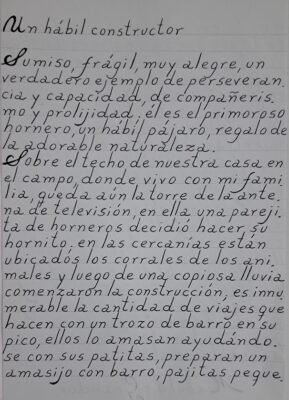 Un hábil constructor
Sumiso, frágil, muy alegre, un
verdadero ejemplo de perseveran.
cia y capacidad, de compañeris.
mo y prolijidad, él es el primoroso
hornero, un hábil pájaro, regalo de
la adorable naturaleza.
Sobre el techo de nuestra casa en
el campo, donde vivo con mi fami.
lia, queda aún la torre de la ante.
na de televisión, en ella una pareji.
ta de horneros decidió hacer su
hornito, en las cercanías están
ubicados los corrales de los ani.
males y luego de una copiosa lluvia
comenzaron la construcción, es innu
merable la cantidad de viajes que
hacen con un trozo de barro en su
pico, ellos lo amasan ayudándo.
se con sus patitas, preparan un
amasijo con barro, pajitas peque.